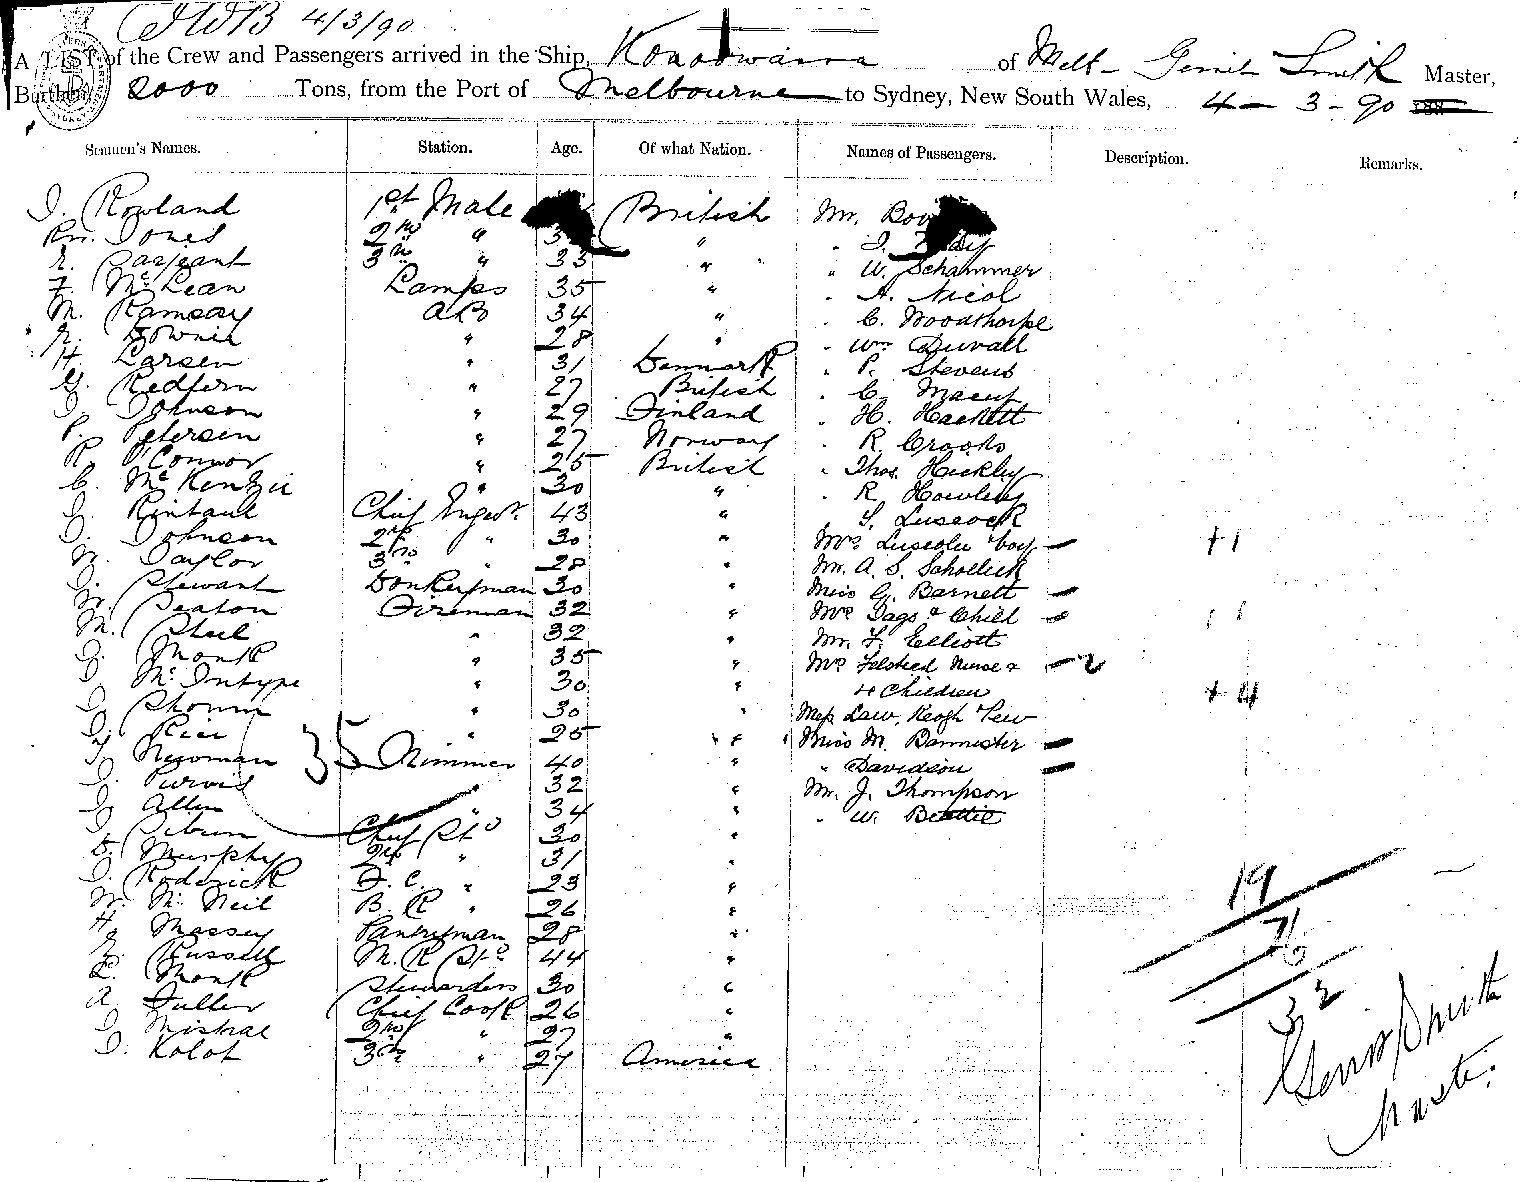 JWB 4/3/90
A LIST of the Crew and Passengers arrived in the Ship, Konoowarra of Melb- Gerrit Smith Master,
Burthen, 2000 Tons, from the Port of Melbourne to Sydney, New South Wales, 4 - 3 - 90 188
Seamen's Names. Station. Age. Of what Nation. Names of Passengers. Description. Remarks.
J. Rowland 1st Mate British Mr. Bow
Rd. Jones 2nd " 3 " " J.
E. Sargeant 3rd " 33 " " W. Schammer
F. McLean Lamps 35 " " A. Nicol
M. Ramsay AB 34 " " C. Woodthorpe
Downie " 28 " Wm Duvall
H. Larsen " 31 Denmark " P. Stevens
G. Redfern " 27 British " C. Macey
J. Johnson " 29 Finland " H. Hackett
P. Petersen " 27 Norway " R. Crooks
R. O'Connor " 25 British " Thos. Hickley
C. McKenzie " 30 " " R. Howley
J. Rintaul Chief Enger. 43 " " S. Luscock
J. Johnson 2nd " 30 " Mrs boy - +1
W. Taylor 3rd " 28 " Mr. A. S. Schollick
J. Stewart Donkeyman 30 " Miss G. Barnett -
W. Seaton Fireman 32 " Mrs Gags & Child - 1 1
M. Shiel " 32 " Mr. F. Elliott
J. Monk " 35 " Mrs Felsted Nurse & - 2
J. McIntype " 30 " 4 Children + 4
J. " 30 " Mess Law, Keogh
J. Rice " 25 " " Miss M. Bannister -
T. Newman 35 Trimmer 40 " " Davidson -
J. Purvis " 32 " Mr. J. Thompson
J. Allen " 34 " " W. Beattie
J. Chief Std 30 "
D. Murphy 2nd " 31 "
J. Roderick F. C. " 23 "
W. McNeil B. R " 26 "
H. Massey Pantryman 28 "
E. Russell M. R Std 44 "
L. Monk Stewardess 30 "
A. Fuller Chief Cook 26 "
J. Mistral 2nd " 27 "
J. Kolot 3rd " 27 America
19
7
6
32
Gerrit Smith
Master